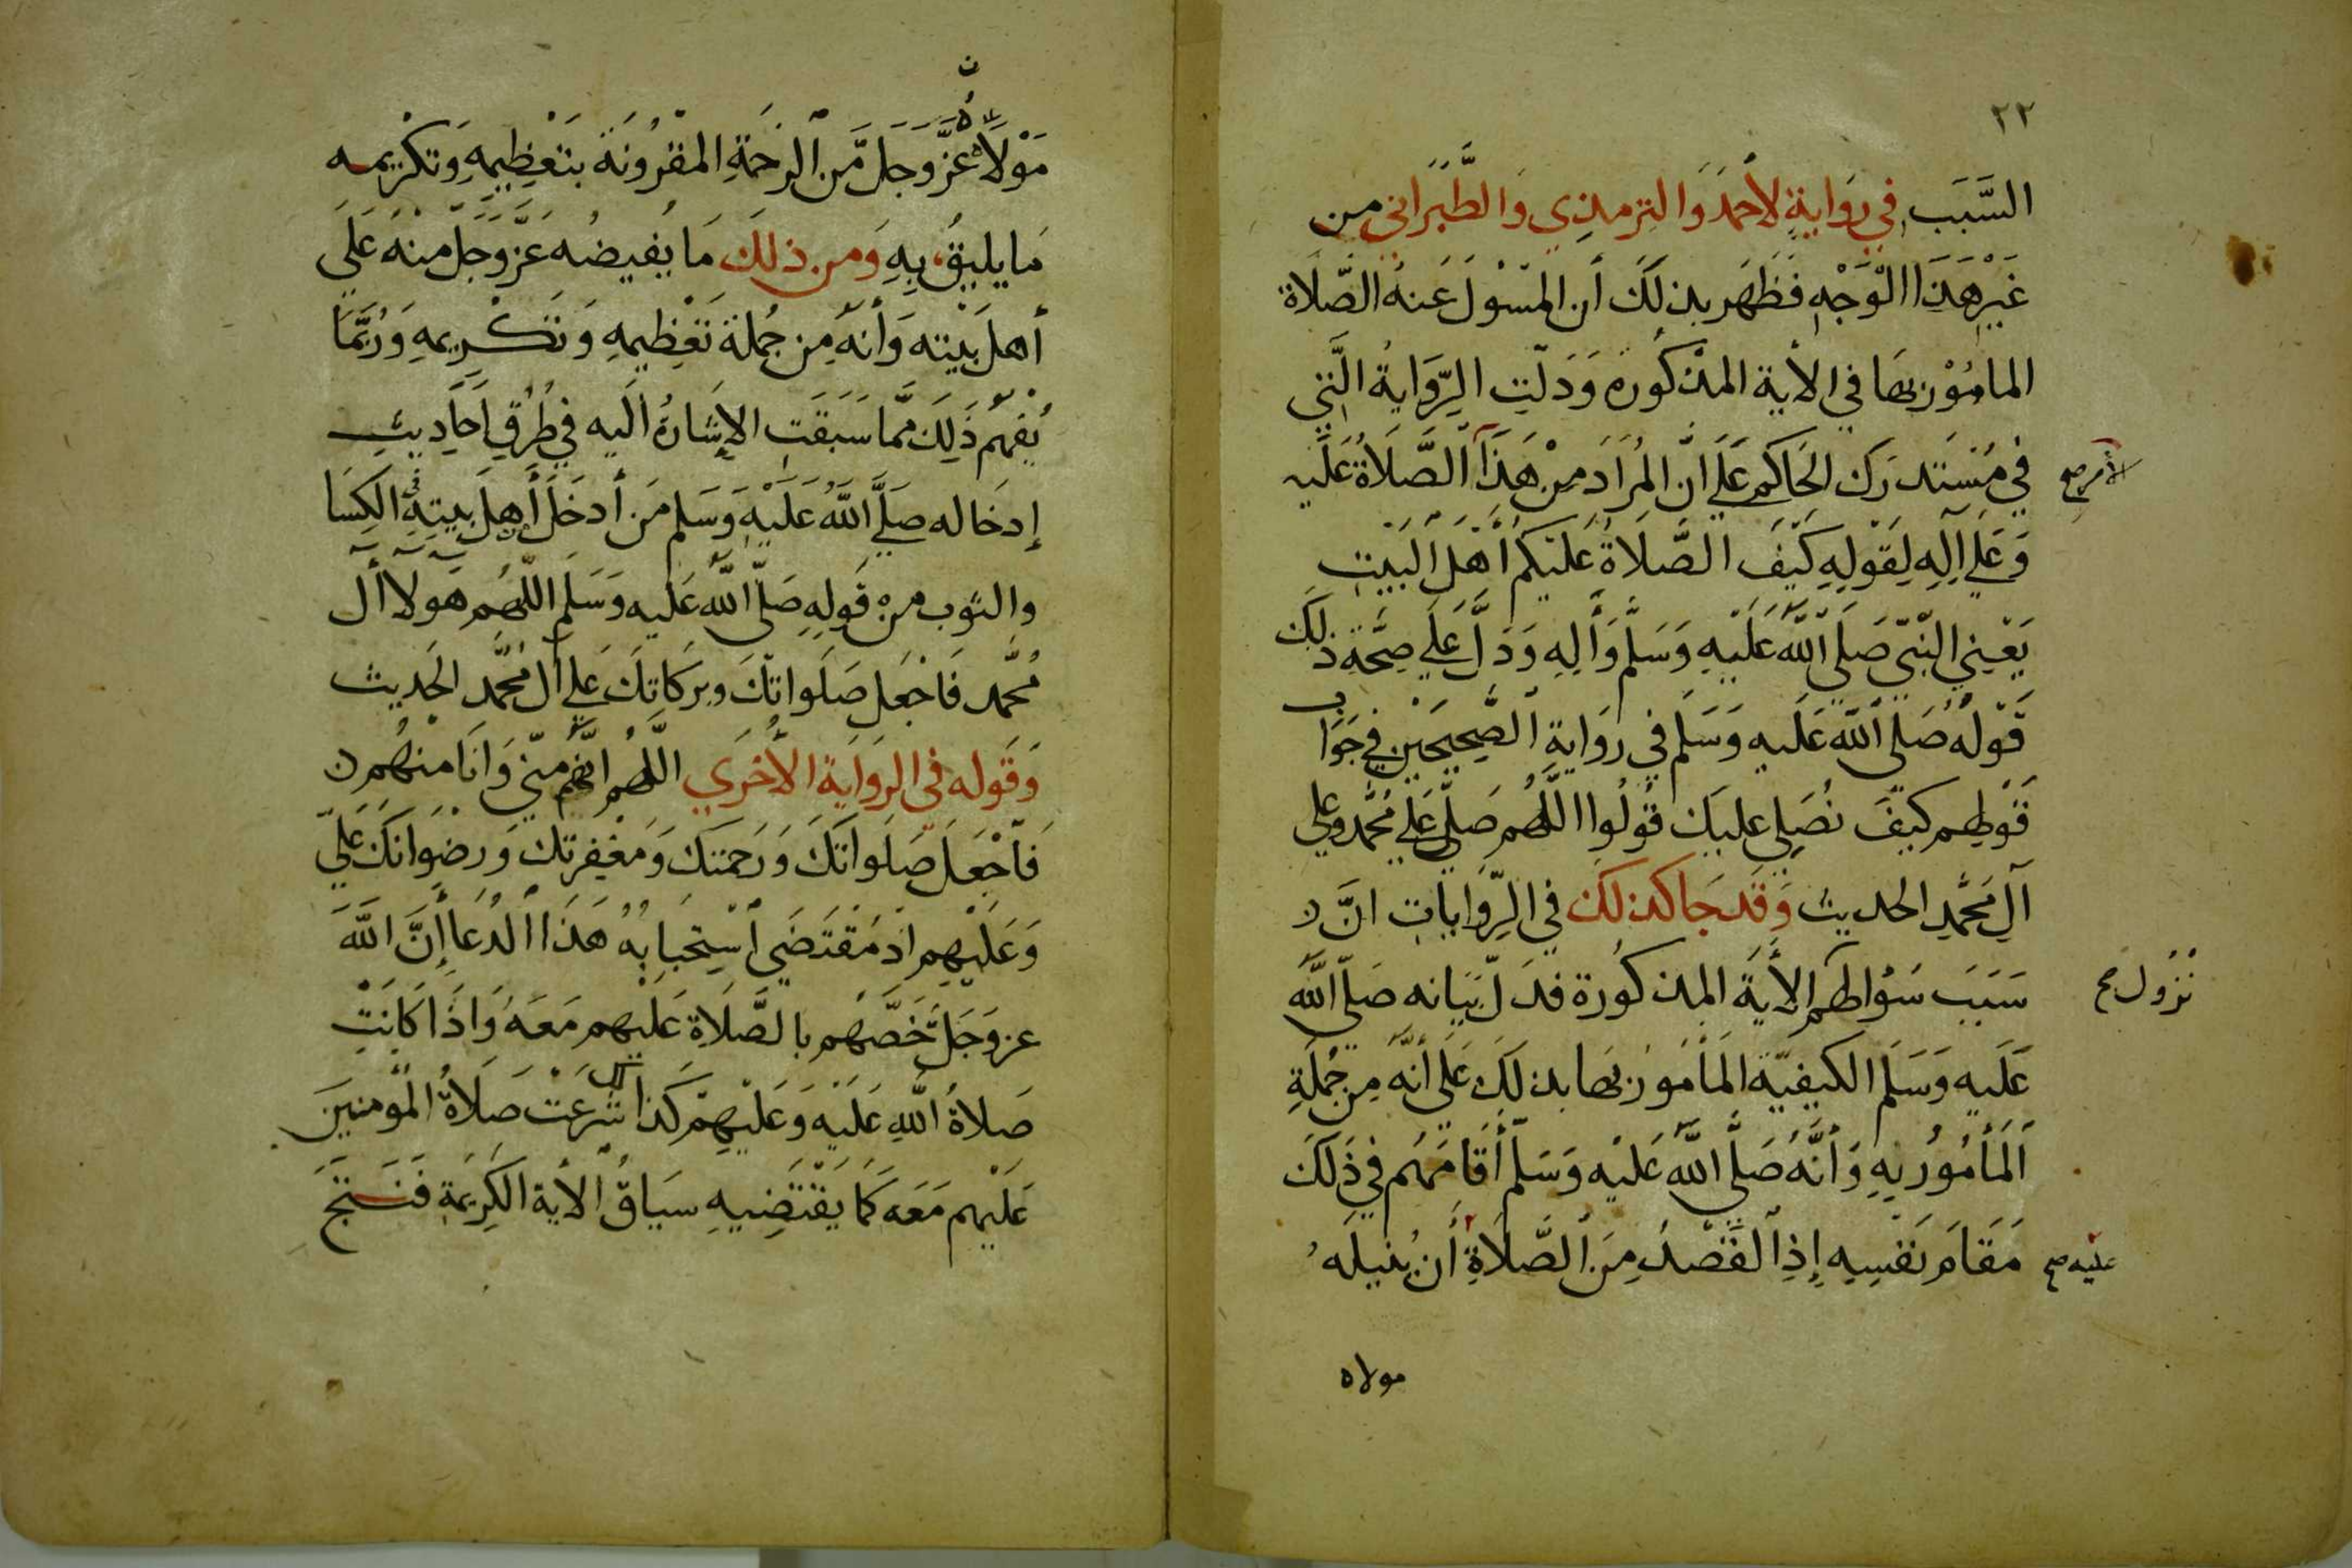 ٢٢
السَّبَب في رَوايةٍ لأحمَدَ وَالترمذِي وَالطَّبَرَاني من
غَيْرِ هَذَا الْوَجْهِ فَظَهَر بذلكَ أن المسْولَ عَنهُ الصَّلاة
المامُوْر بهَا في الأية المذكُوره وَدَلّتِ الرِّوَايةُ الَّتي
في مُسْتَدرَك الحَاكم عَلَي انَّ المُرَادَ مِنْ هَذَا الصَّلاَةُ عَلَيه
الأمر صح
وَعَلَي اٰلِهِ لِقَوْلِهِ كَيْفَ الصَّلاَةُ عَلَيكُم أهْلَ البَيْتِ
يَعْنِي النّبيّ صَلّي اللّهُ عَلَيْهِ وَسَلَّم وَألِهِ وَدَلَّ عَلَي صِحَّةِ ذلكَ
قَوْلُهُ صَلَّى اللّهُ عَلَيه وَسَلم في روَايةِ الصَّحِيحَيْن في جَوَاب
قَوْلهم كَيفَ نُصَلي عليكَ قُولُوا اللهُم صَلّ عَلَي مُحَّمد وعلي
آلِ مُحَمَّدِ الحديث وَقَد جَا كذلكَ في الرِّوَاياتِ انَّ
سَبَبَ سُؤالهم الأيَة المذكُورة فدَلّ بَيَانه صَلّي اللَّهُ
نزُول صح
عَلَيه وَسَلم الكيفيّة المَأمُور بهَا بذلكَ عَلَي أنَّه مِن جُملَةِ
اَلمَأمُورُ بِهِ وَأنَّهُ صَلَّي اللَّهُ عَلَيْه وَسَلم أقَامَهُم في ذَلكَ
مَقَامَ نَفْسِهِ إذِ القَصْدُ مِنَ الصَّلاَةِ أن يُنيلَهُ
عليه صح
مولاه
مَوْلاَهُ عَزَّ وَجَلَ مِّنَ الرَحمَةِ المقْرُونَة بتَعْظِيمِهِ وَتكْرِيمِه
مَا يليقُ بِهِ وَمن ذلكَ مَا يُفيضُه عَزَّ وَجَلّ مِنْهُ عَلَي
أهلَ بَيْته وَأنّهُ مِن جُملَة تَعْظِيمهِ وَتَكْرِيمِهِ وَرُبَّمَا
يُفهَمُ ذَلِكَ مِّمَا سَبَقَت الإشَارةُ الَيه في طُرُقِ أَحَاديثِ
إدخَاله صَلَّي اللّهُ عَلَيْه وَسَلم مَن أدخَلَ أهلَ بيتهِ في الكِسَا
والثوب من قَولِهِ صَلَّي اللّهُ عَليه وَسَلَم اللّهُم هَولآ أَل
مُحَّمد فَاجْعَل صَلَواتكَ وبرَكَاتكَ عَلي أل مُحَّمد الحَديث
وَقَوله في الروَاية الأخرَي اللّهُم انهُم منّي وَانَا منْهُم
فَاَجْعَل صَلَواتكَ وَرَحمتكَ وَمغْفِرتكَ وَرضوَانكَ عَلَيّ
وَعَلَيْهِم اذ مُقْتَضَي أسْتِجَابةُ هَذَا الدُعَا إنَّ اللَّهَ
عز وَجَلَّ خَصَّهُم بالصَّلاَةِ عَلَيْهم مَعَهُ وَاذَا كَانَتْ
صَلاةُ اللهِ عَلَيْه وَعَلَيْهِم كَذلك شُرعَتْ صَلاَةُ المؤمنينَ
عَلَيْهم مَعَه كَمَا يَقْتَضِيهِ سيَاقُ الأية الكَرِيمَةِ